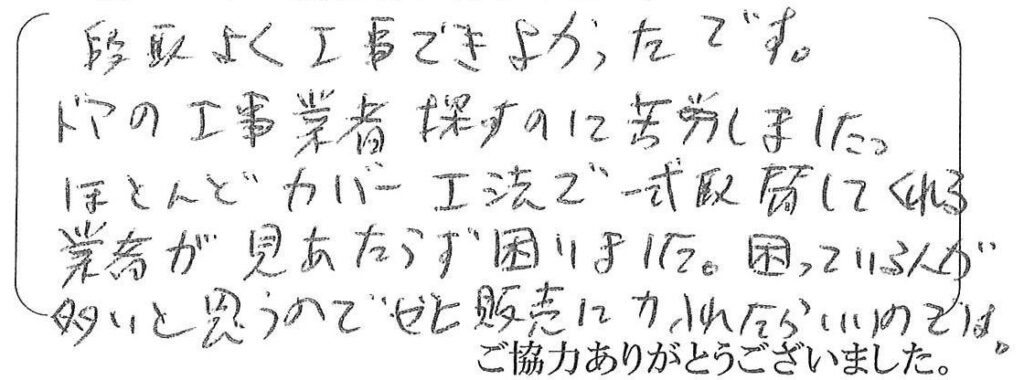 段取よく工事できよかったです。
ドアの工事業者探すのに苦労しました。
ほとんどカバー工法で一式取替してくれる
業者が見あたらず困りました。困っている人が
多いと思うのでぜひ販売に力入れたらいいのでは。
ご協力ありがとうございました。